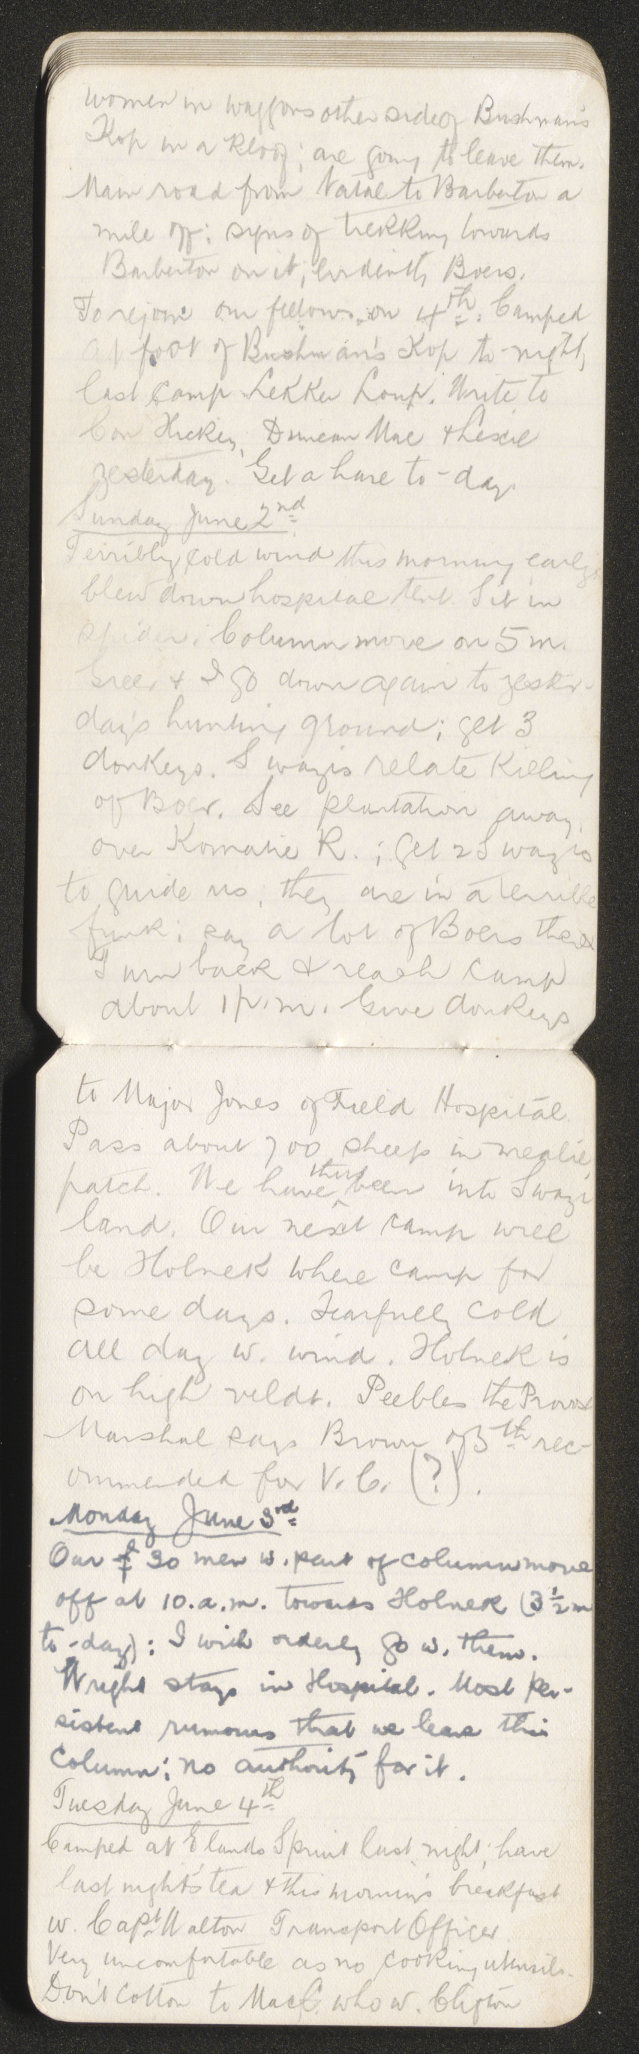 women in waggons other side of Bushman's
Kop in a kloof; are going to leave them.
Main road from Natal to Barberton a
mile off: signs of trekking towards
Barberton on it; evidently Boers.
To rejoin our fellows on 4th. Camped
at foot of Bushman's Kop to-night,
last camp Lekker Loup. Write to
Con Hickey, Duncan Mac & Lexie
yesterday. Get a hare to-day.
Sunday June 2nd
Terribly cold wind this morning early
blew down hospital tent. Sit in
spider. Column move on 5 m.
Greer & I go down again to yester-
day's hunting ground; get 3
donkeys. Swazis relate killing
of Boer. See plantation away
over Komatie R.; get 2 Swazis
to guide us, they are in a terrible
funk; say a lot of Boers there
Turn back & reach camp
about 1 p.m. Give donkeys
to Major Jones of Field Hospital.
Pass about 700 sheep in mealie
patch. We have thus been into Swazi
land. Our next camp will
be Holnek where camp for
some days. Fearfully cold
all day w. wind. Holnek is
on high veldt. Peebles the Provost
Marshal says Brown of 5th rec-
ommended for V.C. (?).
Monday June 3rd
Our 30 men w. part of column move
off at 10.a.m. towards Holnek (3½ m
to-day): I with orderly go w. them.
Wright stays in Hospital. Most per-
sistent rumours that we leave this
column; no authority for it.
Tuesday June 4th
Camped at Elands Spruit last night; have
last night's tea & this morning's breakfast
w. Capt Walton Transport Officer.
Very uncomfortable as no cooking utensils.
Don't cotton to MacC. who w. Clifton